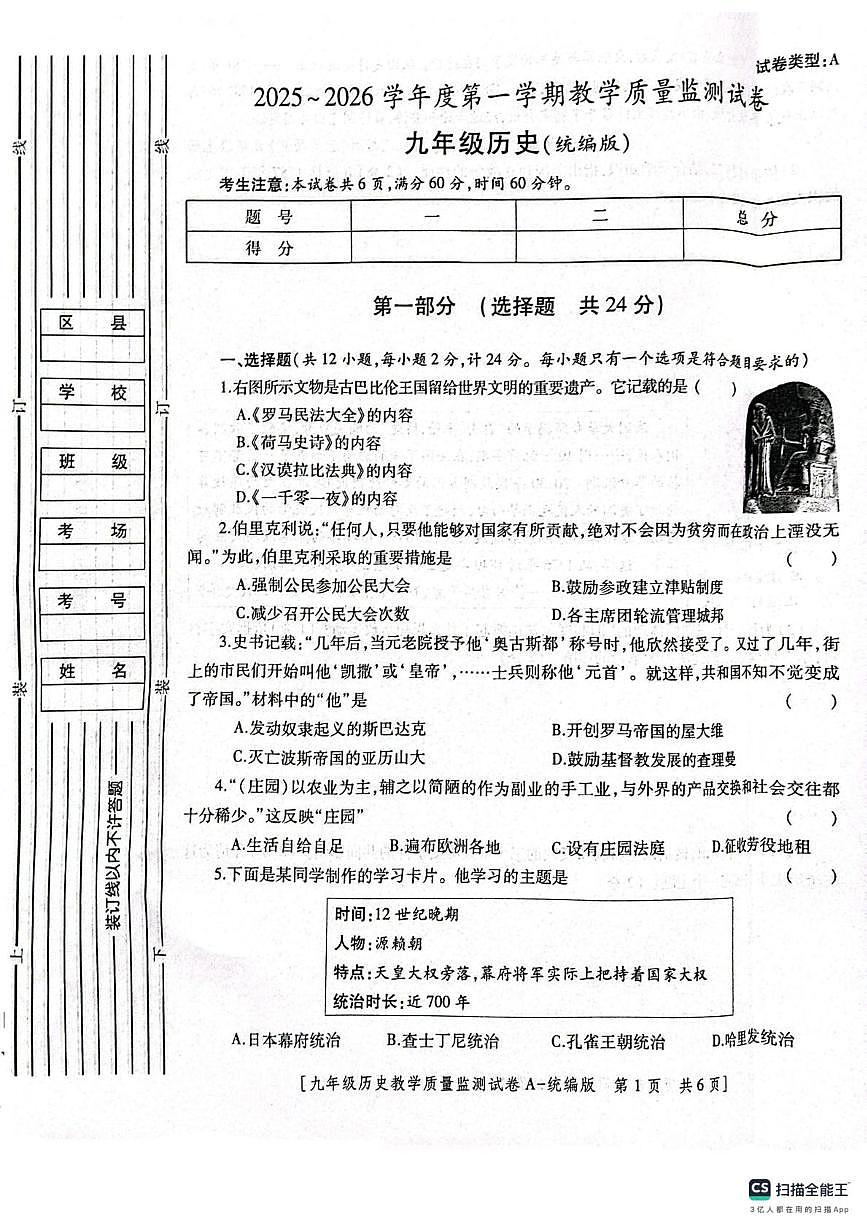 试卷类型:A
2025~2026学年度第一学期教学质量监测试卷
九年级历史(统编版)
考生注意:本试卷共6页,满分60分,时间60分钟。
题 号 一 二 总 分
得 分
第一部分 (选择题 共24分)
一、选择题(共12小题,每小题2分,计24分。每小题只有一个选项是符合题目要求的)
1.右图所示文物是古巴比伦王国留给世界文明的重要遗产。它记载的是( )
A.《罗马民法大全》的内容
B.《荷马史诗》的内容
C.《汉谟拉比法典》的内容
D.《一千零一夜》的内容
2.伯里克利说:“任何人,只要他能够对国家有所贡献,绝对不会因为贫穷而在政治上湮没无
闻。”为此,伯里克利采取的重要措施是 ( )
A.强制公民参加公民大会 B.鼓励参政建立津贴制度
C.减少召开公民大会次数 D.各主席团轮流管理城邦
3.史书记载:“几年后,当元老院授予他‘奥古斯都’称号时,他欣然接受了。又过了几年,街
上的市民们开始叫他‘凯撒’或‘皇帝’,……士兵则称他‘元首’。就这样,共和国不知不觉变成
了帝国。”材料中的“他”是 ( )
A.发动奴隶起义的斯巴达克 B.开创罗马帝国的屋大维
C.灭亡波斯帝国的亚历山大 D.鼓励基督教发展的查理曼
4.“(庄园)以农业为主,辅之以简陋的作为副业的手工业,与外界的产品交换和社会交往都
十分稀少。”这反映“庄园” ( )
A.生活自给自足 B.遍布欧洲各地 C.设有庄园法庭 D.征收劳役地租
5.下面是某同学制作的学习卡片。他学习的主题是 ( )
时间:12世纪晚期
人物:源赖朝
特点:天皇大权旁落,幕府将军实际上把持着国家大权
统治时长:近700年
A.日本幕府统治 B.查士丁尼统治 C.孔雀王朝统治 D.哈里发统治
[九年级历史教学质量监测试卷A-统编版 第1页 共6页]
区 县
学 校
班 级
考 场
考 号
姓 名
装订线以内不许答题
线
订
装
上
线
订
装
下
CS 扫描全能王
3亿人都在用的扫描App